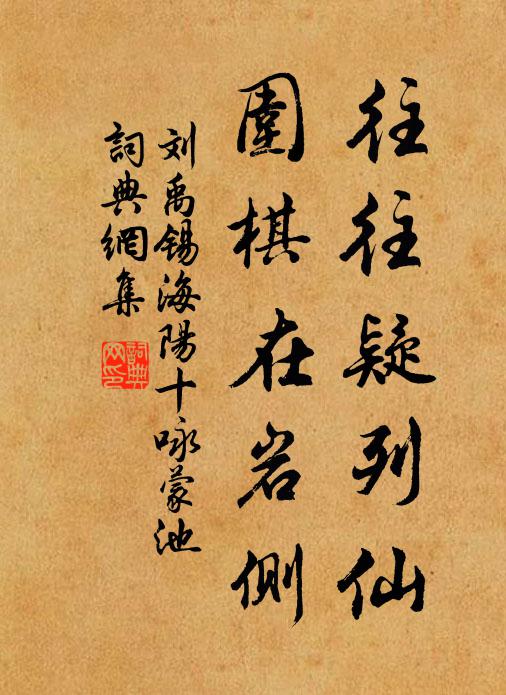 往往疑列仙
圍棋在岩側
刘禹锡海陽十咏蒙池
詞典網集
詞典網印